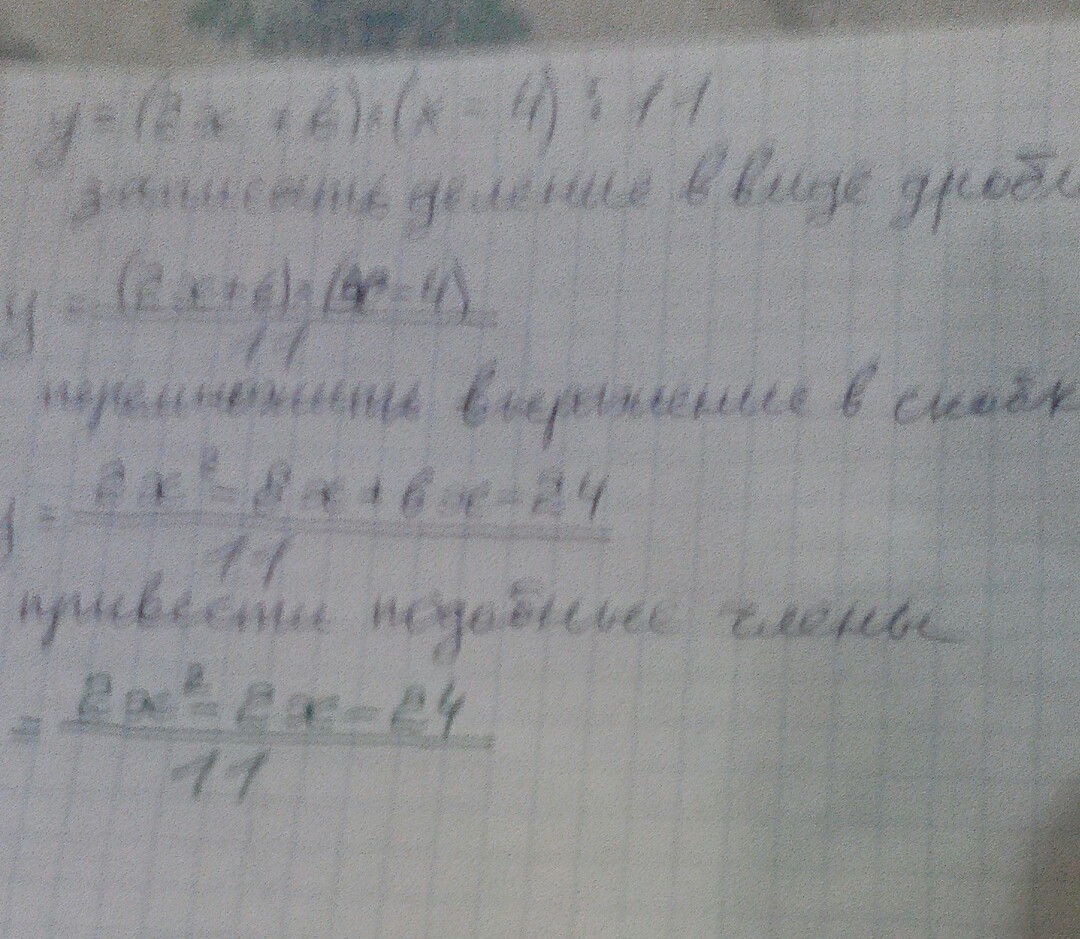 y = (2x + 6) × (x - 4) : 11
записать деление в виде дроби
y = (2x+6)×(x-4)
11
перемножить выражение в скобк
y = 2x² - 8x + 6x - 24
11
привести подобные члены
= 2x² - 2x - 24
11